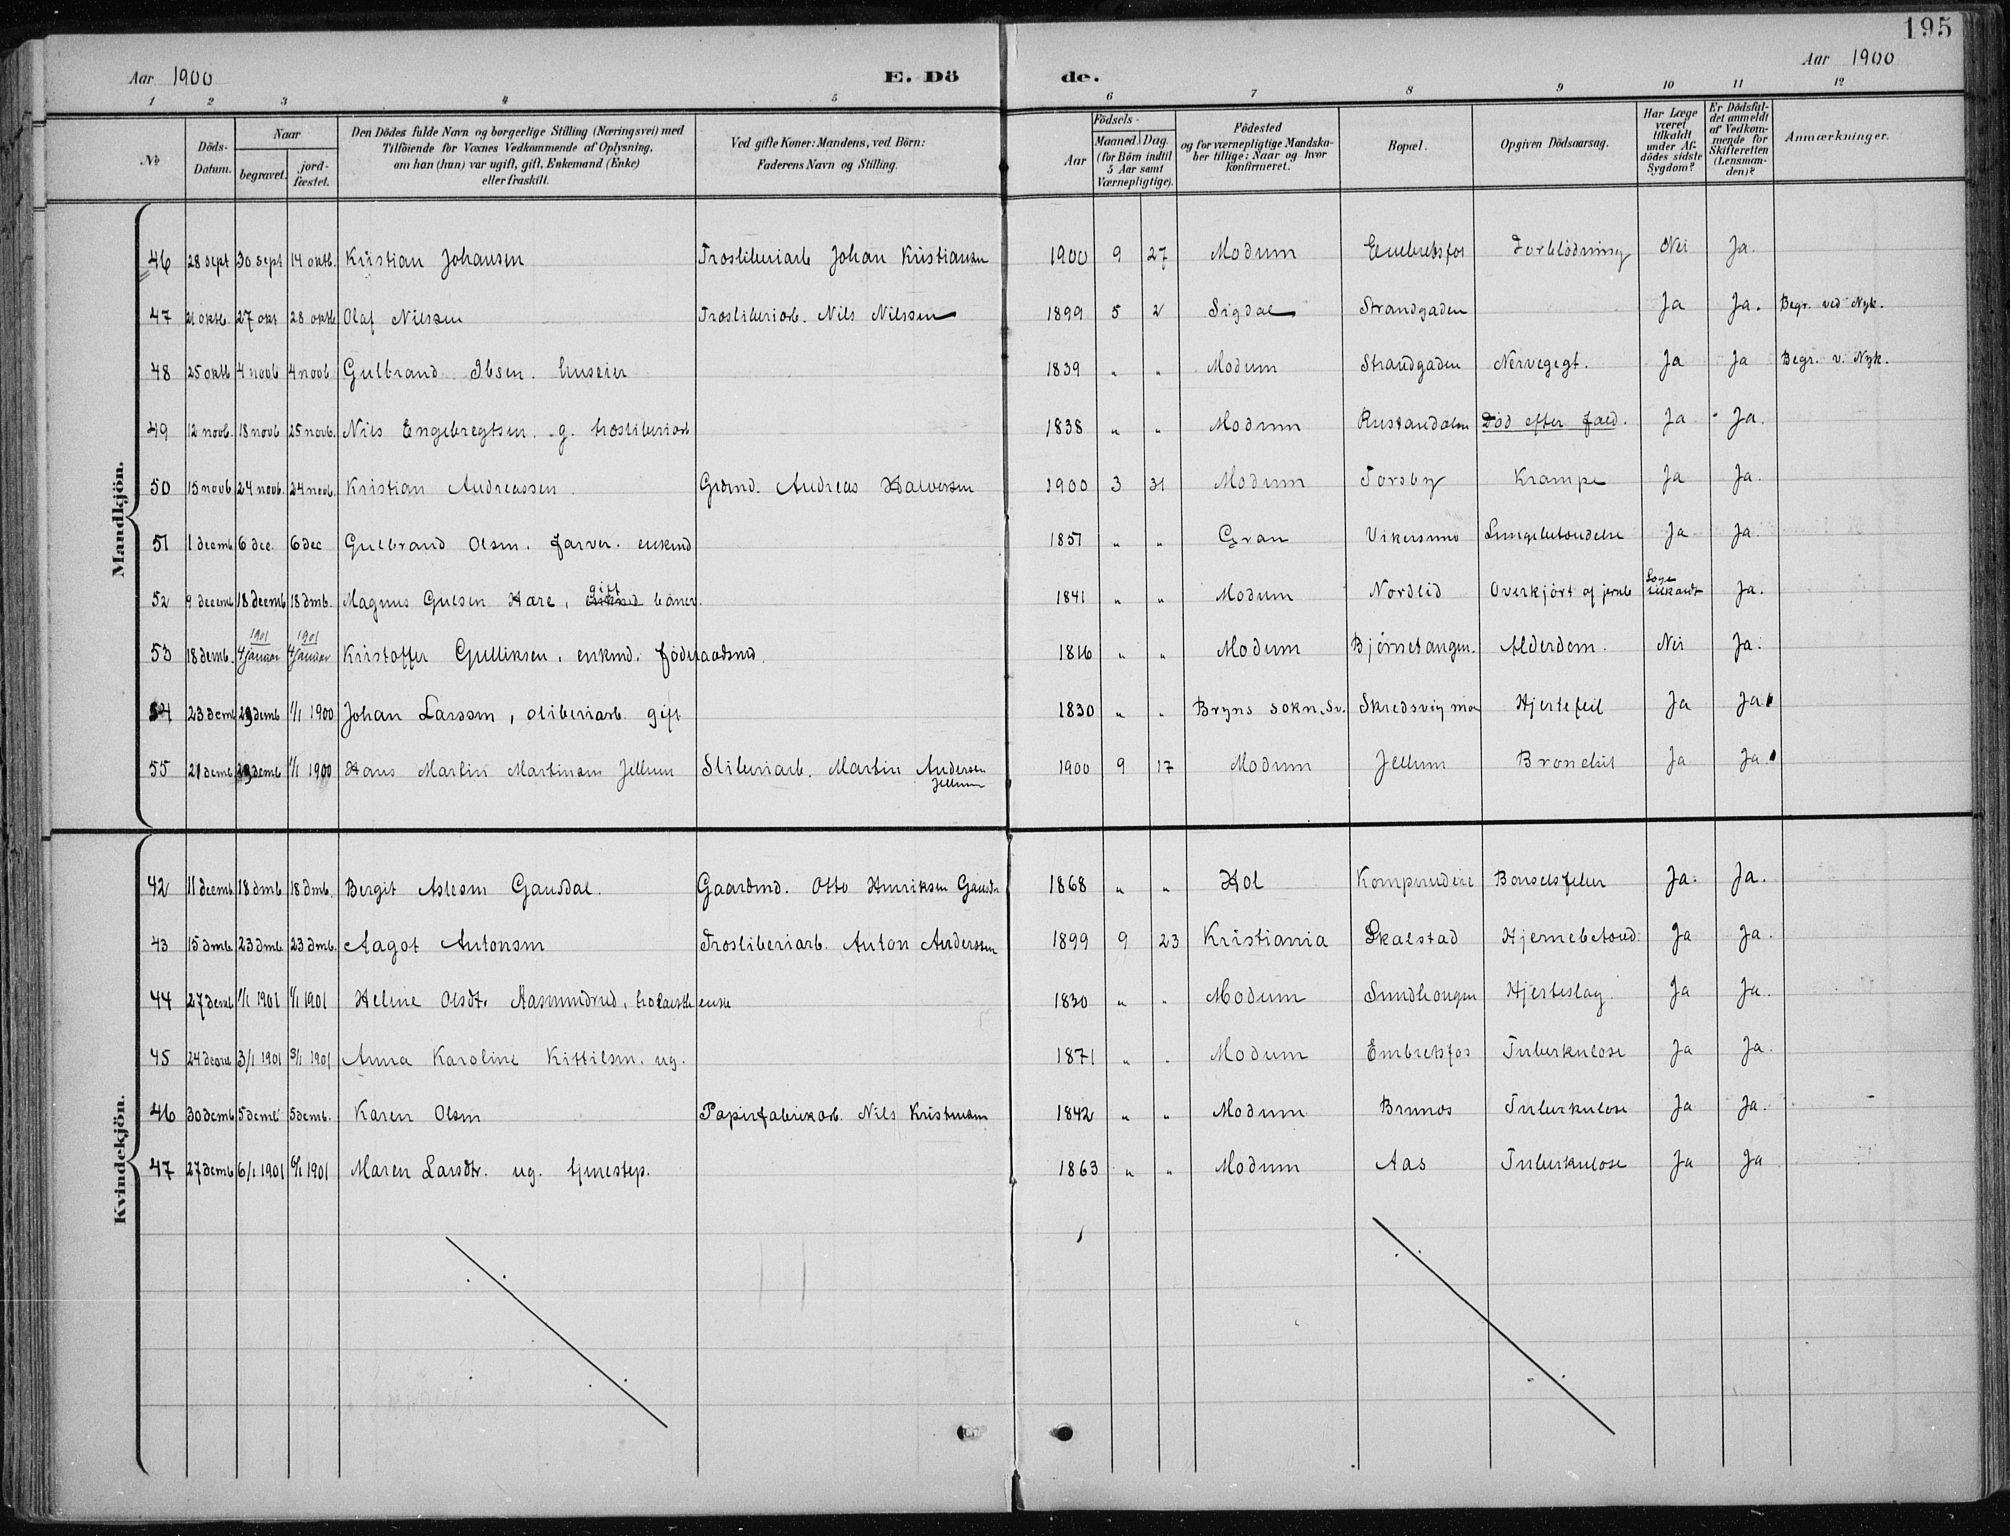 195
Aar 1900 E. Dö de. Aar 1900
1 2 3 4 5 6 7 8 9 10 11 12
No
Döds-Datum.
Naar
begravet.
jord-fæstet.
Den Dödes fulde Navn og borgerlige Stilling (Næringsvei) med
Tilföiende for Voxnes Vedkommende af Oplysning,
om han (hun) var ugift, gift, Enkemand (Enke)
eller fraskilt.
Ved gifte Koner: Mandens, ved Börn:
Faderens Navn og Stilling.
Födsels-
Aar
Maaned. Dag
(for Börn indtil
5 Aar samt
Værnepligtige).
Födested
og for værnepligtige Mandska-
ber tillige: Naar og hvor
konfirmeret.
Bopæl.
Opgiven Dödsaarsag.
Har Læge
været
tilkaldt
under Af-
dödes sidste
Sygdom?
Er Dödsfal-
det anmeldt
af Vedkom-
mende for
Skifteretten
(Lensman-
den)?
Anmærkninger.
Mandkjön.
46 28 sept 30 sept 14 oktb. Kristian Johansen Træsliberiarb Johan Kristiansen 1900 9 27 Modum Embretsfos Forblödning Nei Ja.
47 21 oktb. 27 okt 28 oktb Olaf Nilssen Træsliberiarb. Nils Nilssen 1899 5 2 Sigdal Strandgaden Ja Ja. Begr. ved Nyk.
48 25 oktb 4 novb 4 novb Gulbrand Ibsen. huseier 1839 " " Modum Strandgaden Nervegigt. Ja Ja Begr. v. Nyk.
49 12 novb. 18 novb 25 novb. Nils Engebregtsen. g. træsliberiarb 1838 " " Modum Rustandalen Död efter fald. Ja Ja.
50 15 novb 24 novb. 24 novb. Kristian Andreassen. Grdmd. Andreas Halversen 1900 3 31 Modum Torsby Krampe Ja Ja.
51 1 decemb 6 dec. 6 dec Gulbrand Olsen. farver. enkmd 1851 " " Gran Vikersund Lungebetændelse Ja Ja.
52 9 decemb 18 decemb 18 dmb. Magnus Gulsen Hære, enkmd gift böner. 1841 " " Modum Nordlid Overkjört af jernb Læge tilkaldt Ja.
53 18 demb. 1901 4 januar 1901 4 januar Kristoffer Gulliksen, enkmd. föderaadsmd. 1816 " " Modum Bjørnetangen. Alderdom. Nei Ja.
54 23 demb 29 demb 1/1 1900 Johan Larssen, sliberiarb gift 1830 " " Bryns sokn. Sv. Skredsvig moe Hjertefeil Ja Ja
55 21 demb 29 demb 1/1 1900 Hans Martin Martinsen Jellum Sliberiarb. Martin Andersen Jellum 1900 9 17 Modum Jellum Bronchit Ja Ja
Kvindekjön.
42 11 decemb 18 dmb 18 dmb. Bergit Aslesen Gausdal. Gaardmd. Otto Henriksen Gausd. 1868 " " Hol Komperudeie Barselsfeber Ja. Ja.
43 15 dmb. 23 dmb 23 dmb. Aagot Antonsen Træsliberiarb. Anton Anderssen 1899 9 23 Kristiania Skalstad Hjernebetænd. Ja Ja.
44 27 demb 1/1 1901 1/1 1901 Heline Olsdtr Aasmundrud, enke 1830 " " Modum Sundhougen Hjerteslag. Ja Ja.
45 24 demb 3/1 1901 3/1 1901 Anna Karoline Kittilsen. ug. 1871 " " Modum Embretsfos Tuberkulose Ja Ja.
46 30 demb 5 demb 5 demb. Karen Olsen Papirfabrikarb. Nils Kristiansen 1842 " " Modum Brunes Tuberkulose Ja Ja.
47 27 demb 6/1 1901 6/1 1901 Maren Larsdtr. ug. tjenestep. 1863 " " Modum Aas Tuberkulose Ja Ja